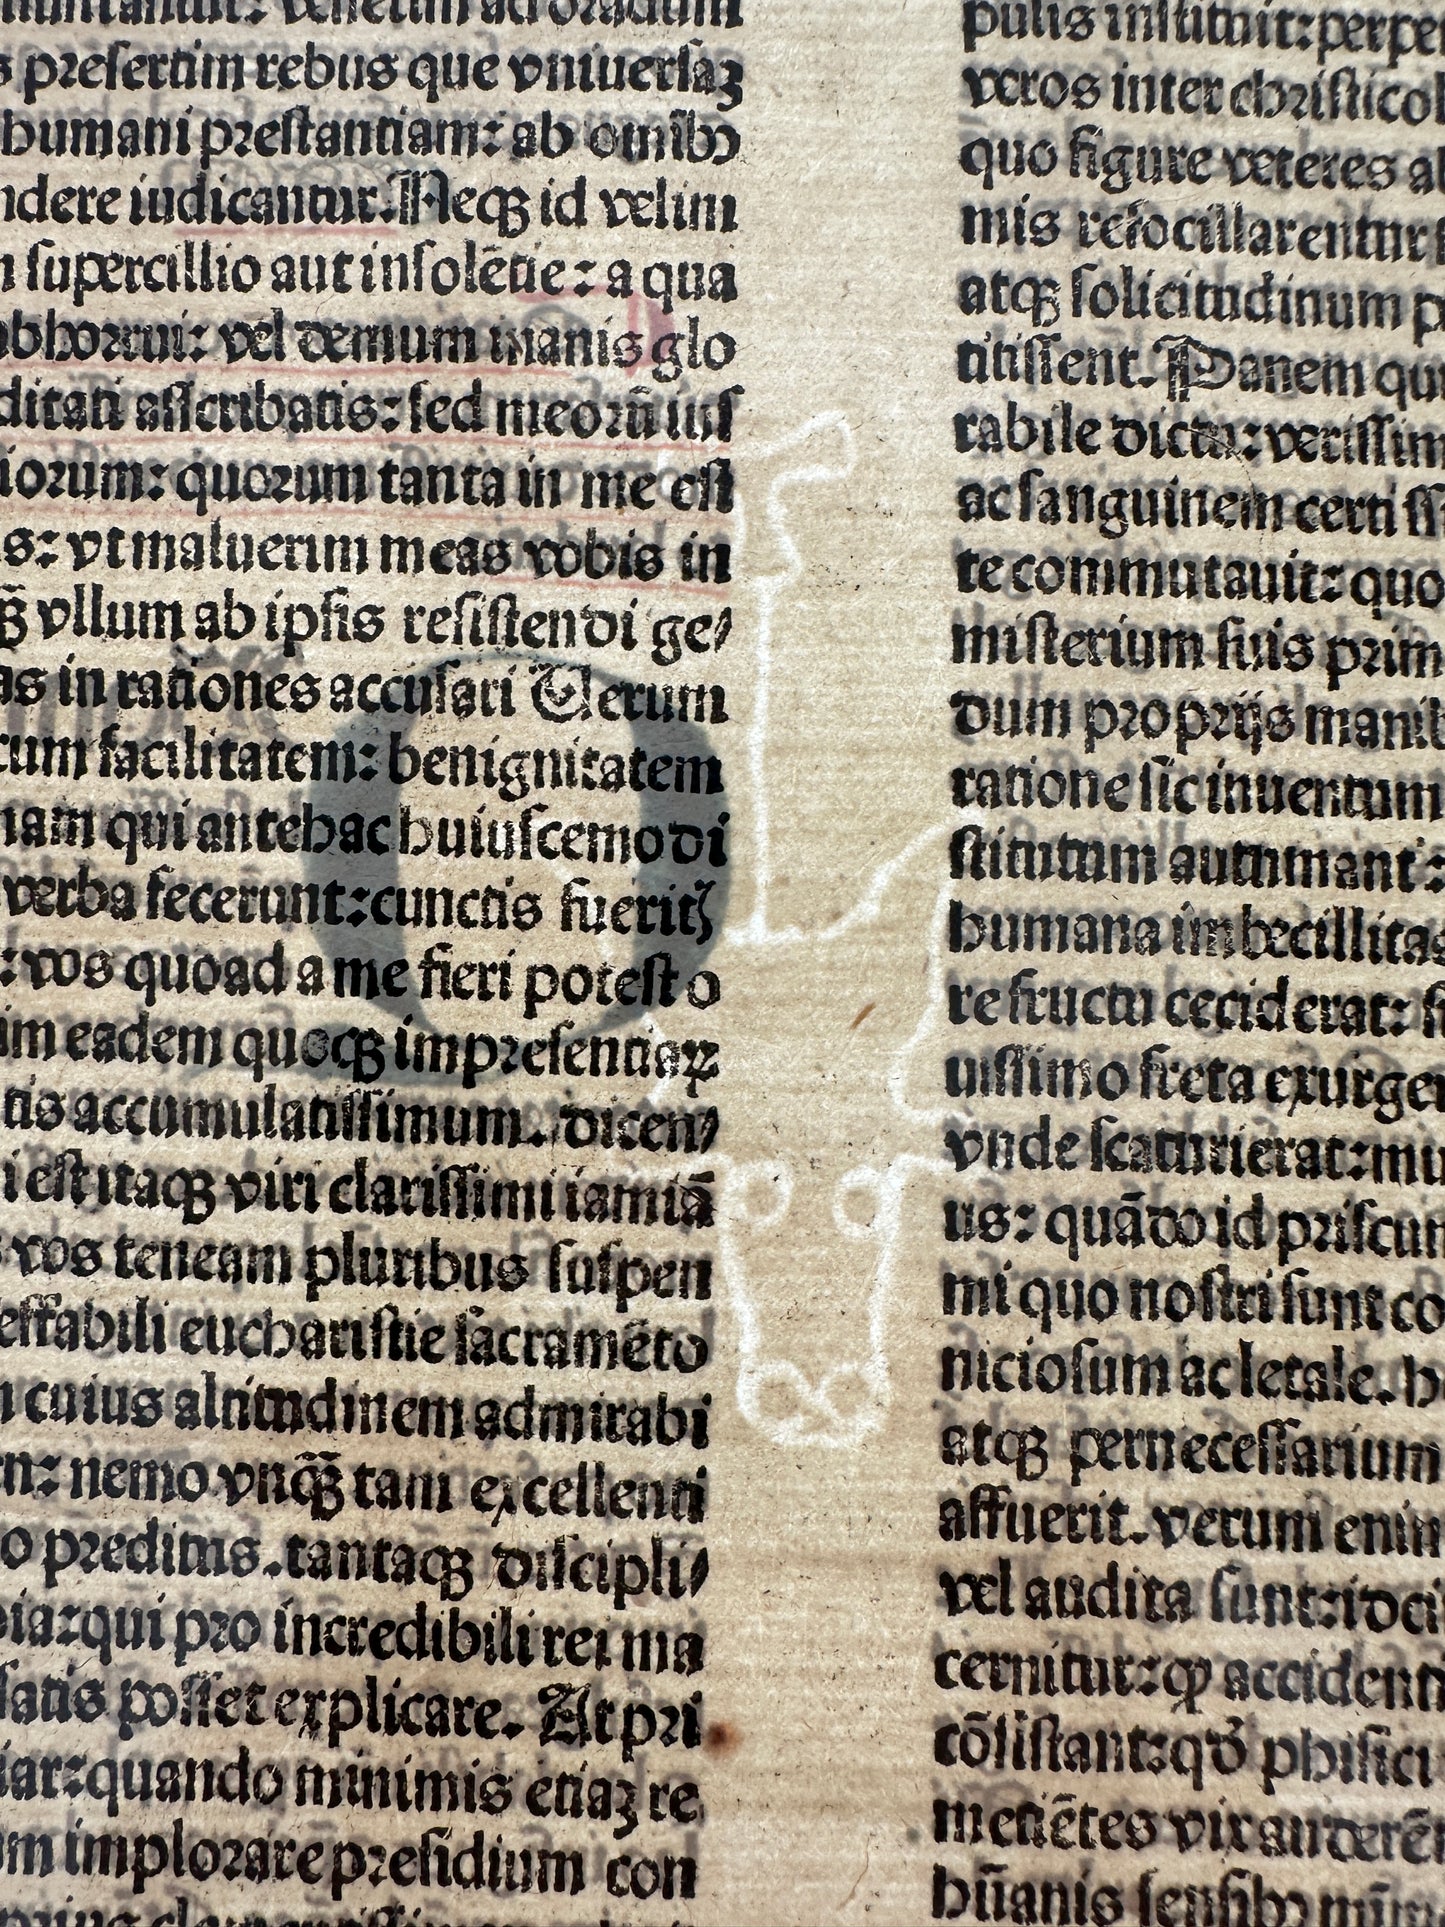 s presertim rebus que vniuersaꝫ
humani prestantiam: ab omibꝰ
ndere iudicantur. Neqꝫ id velim
supercillio aut insolētie: a qua
bhorrui: vel demum inanis glo
ditati asscribatis: sed meorū ius
iorum: quorum tanta in me est
s: vt maluerim meas vobis in
qꝫ vllum ab ipsis resistendi ge/
as in rationes accusari Verum
cum facilitatem: benignitatem
nam qui antehac huiuscemodi
verba fecerunt: cunctis fuerit
: vos quoad a me fieri potest o
im eadem quoqꝫ impresentiaꝝ
tis accumulatissimum. dicen/
i est itaqꝫ viri clarissimi iamiā
vos teneam pluribus suspen
effabili eucharistie sacramēto
cuius altitudinem admirabi
n: nemo vnqꝫ̄ tam excellenti
o preditus. tantaqꝫ discipli/
ia: qui pro incredibili rei ma
satis posset explicare. At pri
iar: quando minimis etiaꝫ re
m implorare presidium con
pulis instituit: perpe
veros inter christicol
quo figure veteres a
mis refocillarentur
atqꝫ solicitudinum p
titissent. Panem qui
rabile dictu: verissim
ac sanguinem certiss
te commutauit: quo
misterium suis prim
dum proprijs manib
ratione sic inuentum
stitutum autumant:
humana imbecillitas
re fructu ceciderat:
uissimo freta exurge
vnde scaturierat: mu
us: quādo id priscum
mi quo nostri sunt co
niciosum ac letale. h
atqꝫ pernecessarium
affuerit. verum enim
vel audita sunt: idci
cernitur: ꝙ accidenti
cōsistant: qd̄ phisici
metiētes vix auderē
hūanis sensibꝰ